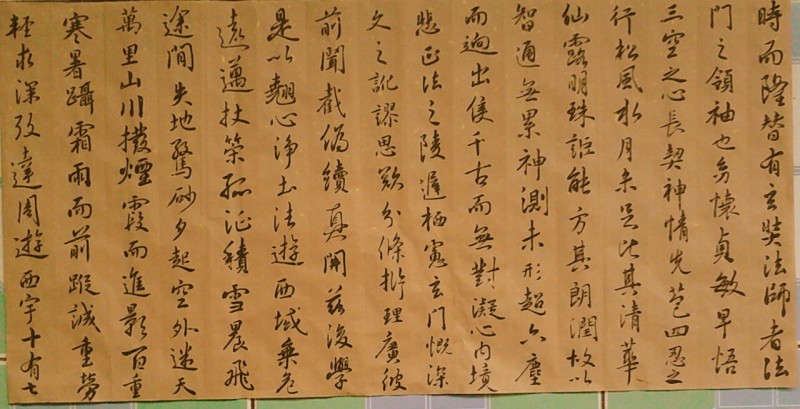 時而隆替有玄奘法師者法
門之領袖也幼懷貞敏早悟
三空之心長契神情先苞四忍之
行松風水月未足比其清華
仙露明珠詎能方其朗潤故以
智通無累神測未形超六塵
而迥出隻千古而無對凝心內境
悲正法之陵遲栖慮玄門慨深
文之訛謬思欲分條析理廣彼
前聞截偽續真開茲後學
是以翹心淨土法遊西域乘危
遠邁杖策孤征積雪晨飛
途間失地驚砂夕起空外迷天
萬里山川撥煙霞而進影百重
寒暑躡霜雨而前蹤誠重勞
輕求深達周遊西宇十有七